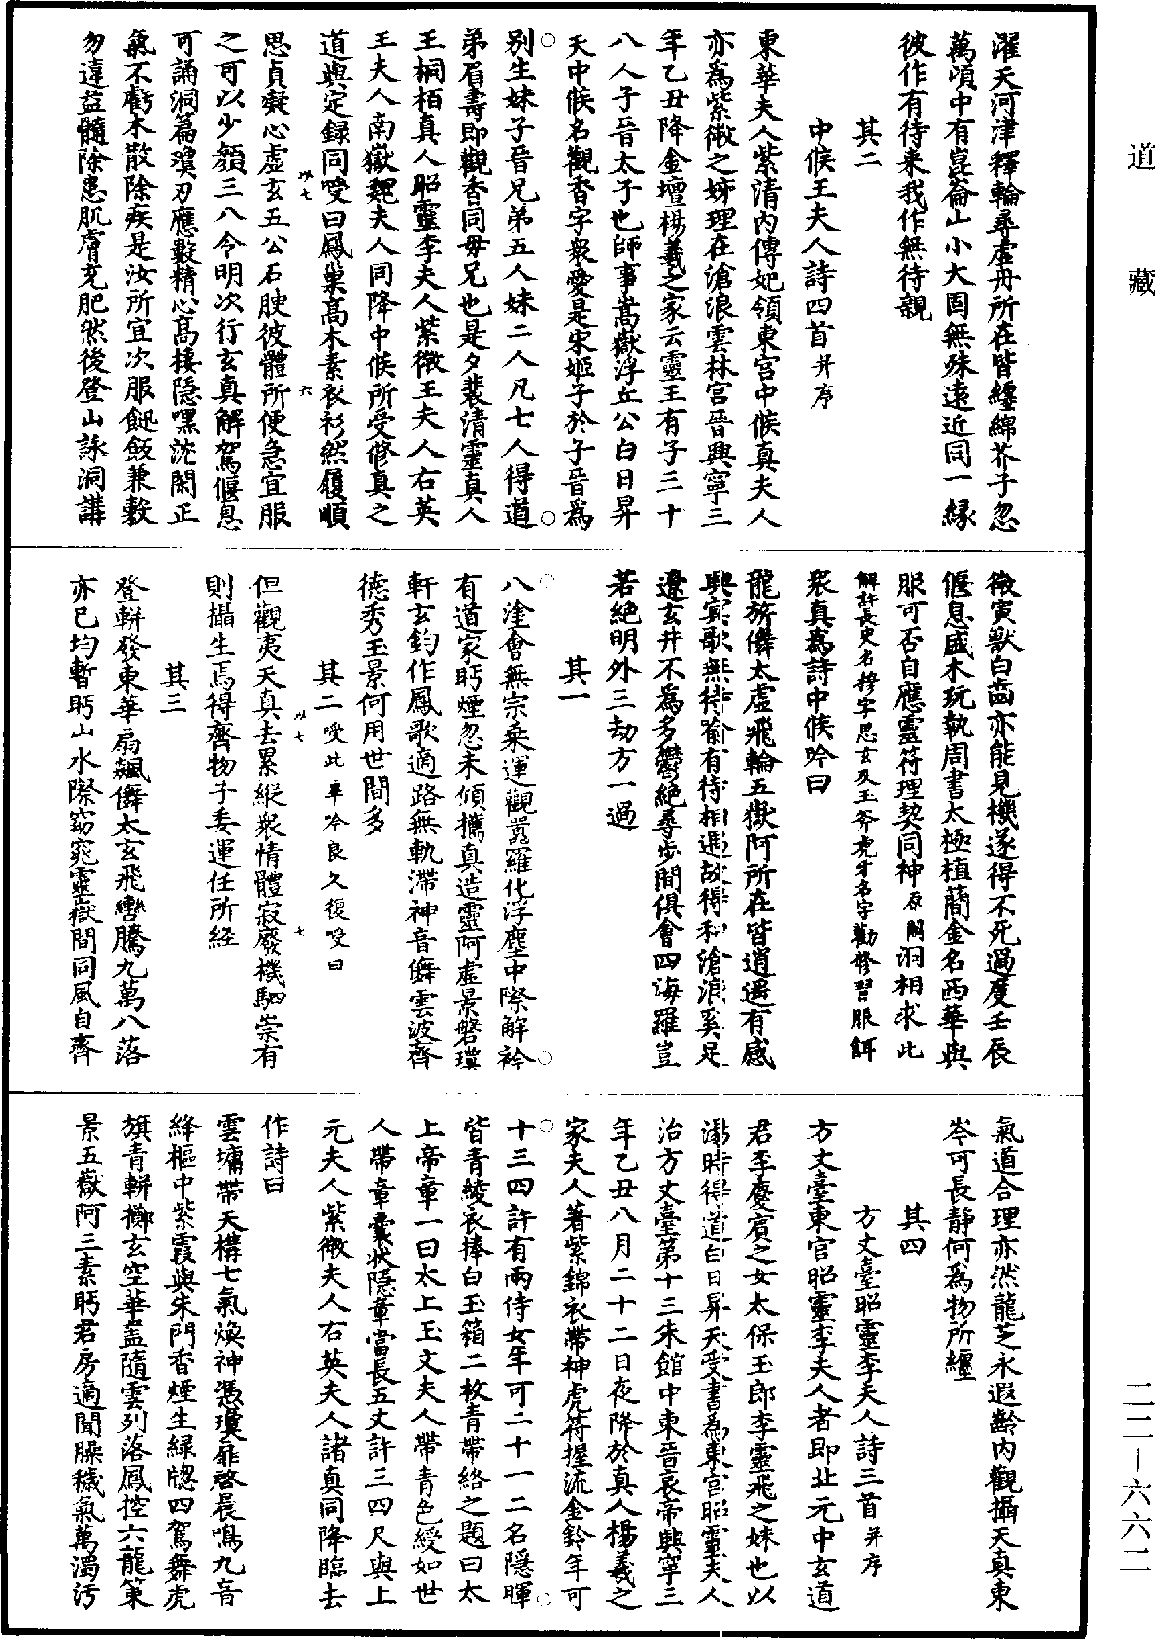 道藏
二二—六六二
濯天河津釋輪尋虛舟所在皆纏綿芥子忽
萬頃中有崑崙山小大固無殊遠近同一緣
彼作有待來我作無待親
其二
中候王夫人詩四首并序
東華夫人紫清內傳妃領東宮中候真夫人
亦為紫微之姊理在滄浪雲林宮晉興寧三
年乙丑降金壇楊羲之家云靈王有子三十
八人子晉太子也師事嵩嶽浮丘公白日昇
天中候名觀香字衆愛是宋姬子於子晉為
別生妹子晉兄弟五人妹二人凡七人得道
弟眉壽即觀香同母兄也是夕裴清靈真人
王桐栢真人昭靈李夫人紫微王夫人右英
王夫人南嶽魏夫人同降中候所受修真之
道與定録同喭曰鳳巢高木素衣衫然履順
思貞凝心虛玄五公石腴彼體所便急宜服
之可以少顏三八令明次行玄真解駕偃息
可誦洞篇瓊刃應數精心高棲隱嘿沈閑正
氣不虧木散除疾是汝所宜次服䭀飯兼穀
勿違益髓除患肌膚充肥然後登山詠洞講
微寅獸白齒亦能見機遂得不死過度壬辰
偃息盛木玩執周書太極植簡金名西華與
服可否自應靈符理契同神原闕洞相求此
解許長史名穆字思玄及玉斧虎牙名字勸修習服餌
衆真為詩中候吟曰
龍旂儛太虛飛輪五嶽阿所在皆逍遙有感
興冥歌無待喻有待相遇故得和滄浪奚足
遼玄井不為多鬱絕尋步間俱會四海羅豈
若絕明外三劫方一過
其一
八塗會無宗乘運觀嚣羅化浮塵中際解衿
有道家眄煙忽未傾攜真造靈阿虛景磐瓊
軒玄鈞作鳳歌適路無軌滯神音儛雲波齊
德秀玉景何用世間多
其二喭此畢吟良久復喭曰
但觀夷天真去累縱衆情體寂廢機駟崇有
則攝生焉得齊物子委運任所經
其三
登軿發東華扇飇儛太玄飛轡騰九萬八落
亦已均暫眄山水際窈窕靈嶽間同風自齊
氣道合理亦然龍芝永遐齡內觀攝天真東
岑可長靜何為物所纏
其四
方丈臺昭靈李夫人詩三首并序
方丈臺東宮昭靈李夫人者即北元中玄道
君李慶賓之女太保玉郎李靈飛之妹也以
湯時得道白日昇天受書為東宮昭靈夫人
治方丈臺第十三朱館中東晉哀帝興寧三
年乙丑八月二十二日夜降於真人楊羲之
家夫人著紫錦衣帶神虎符握流金鈴年可
十三四許有兩侍女年可二十一二名隱暉
皆青綾衣捧白玉箱二枚青帶絡之題曰太
上帝章一曰太上玉文夫人帶青色綬如世
人帶章囊狀隱章當長五丈許三四尺與上
元夫人紫微夫人右英夫人諸真同降臨去
作詩曰
雲墉帶天構七氣煥神馮瓊扉啓晨鳴九音
絳樞中紫霞與朱門香煙生綠牕四駕舞虎
旗青軿擲玄空華蓋隨雲列落鳳控六龍策
景五嶽阿三素眄君房適聞臊穢氣萬濁污